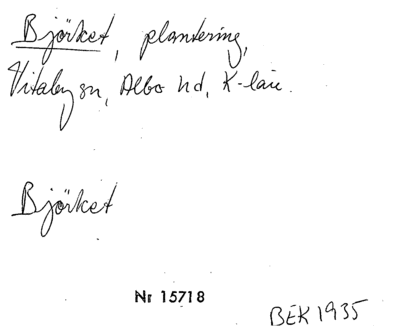 Björket, plantering,
Vitaby sn, Albo hd, K-län.
Björket
Nr 15718
BEK 1935